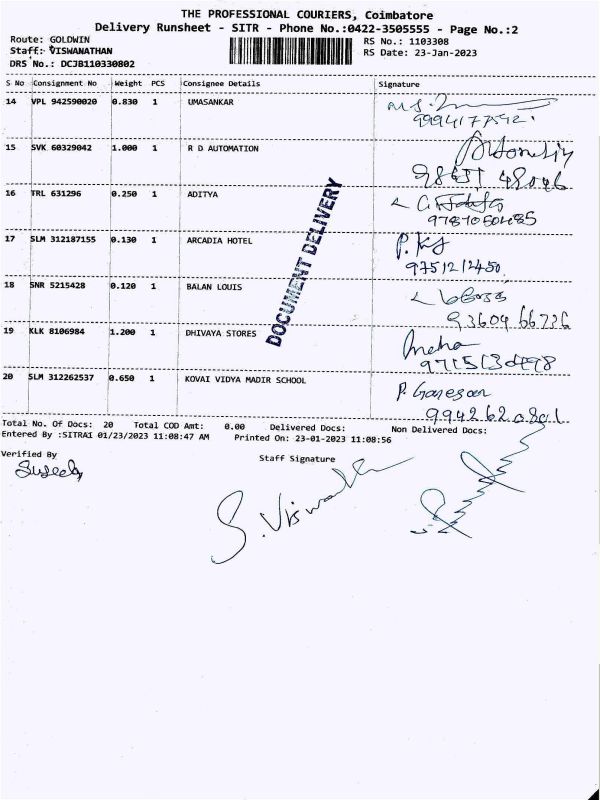 THE PROFESSIONAL COURIERS, Coimbatore
Delivery Runsheet - SITR - Phone No.:0422-3505555 - Page No.:2
Route: GOLDWIN
Staff: VISWANATHAN
DRS No.: DCJB110330802
RS No.: 1103308
RS Date: 23-Jan-2023
S No Consignment No Weight PCS Consignee Details Signature
14 VPL 942590020 0.830 1 UMASANKAR
9994177542.
15 SVK 60329042 1.000 1 R D AUTOMATION
16 TRL 631296 0.250 1 ADITYA
17 SLM 312187155 0.130 1 ARCADIA HOTEL
9751212450
18 SNR 5215428 0.120 1 BALAN LOUIS
93609 66736
19 KLK 8106984 1.200 1 DHIVAYA STORES
20 SLM 312262537 0.650 1 KOVAI VIDYA MADIR SCHOOL P. Ganesan
9942620801
DOCUMENT DELIVERY
Total No. Of Docs: 20 Total COD Amt: 0.00 Delivered Docs: Non Delivered Docs:
Entered By :SITRAI 01/23/2023 11:08:47 AM Printed On: 23-01-2023 11:08:56
Verified By Staff Signature
S. Viswa